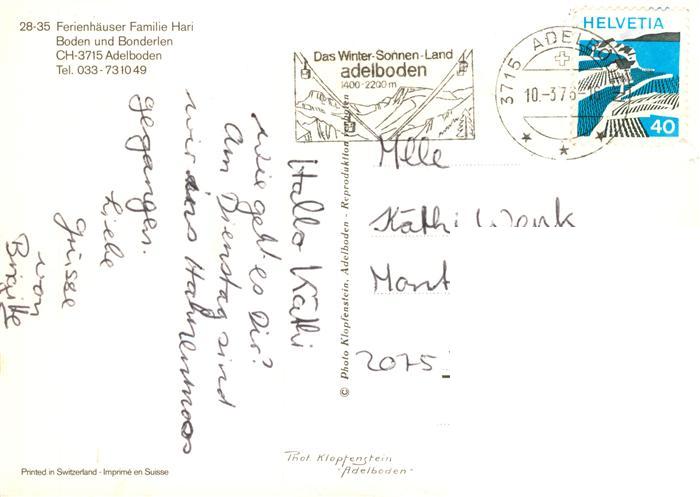 28-35 Ferienhäuser Familie Hari
Boden und Bonderlen
CH-3715 Adelboden
Tel. 033-731049
Das Winter-Sonnen-Land
adelboden
1400-2200m
3715 ADELBO
10.-3.76-16
HELVETIA
40
Hallo Käthi
wie geht es Dir?
Am Dienstag sind
wir ins Hahnenmoos
gegangen.
Liebe
Grüsse
von
Brigitte
© Photo Klopfenstein, Adelboden - Reproduktion verboten
Mlle
Käthi Wenk
Mont
2075
Phot. Klopfenstein
"Adelboden"
Printed in Switzerland - Imprimé en Suisse